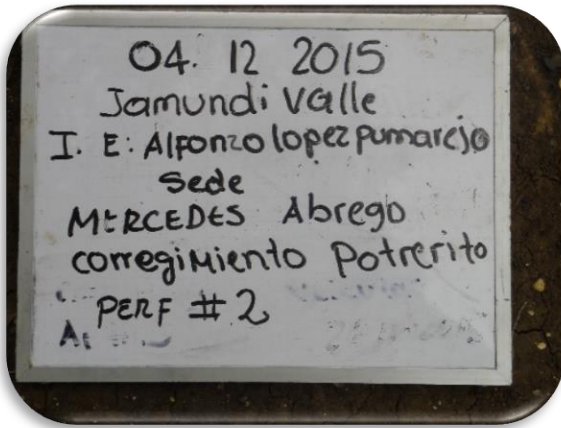 04. 12 2015
Jamundi Valle
I. E: Alfonzo lopez pumarejo
sede
MERCEDES Abrego
corregimiento Potrerito
PERF # 2